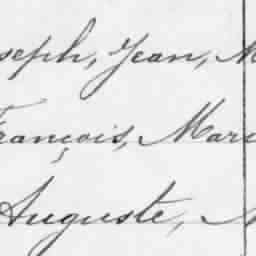 seph, Jean, M
François, Mari
Auguste, M